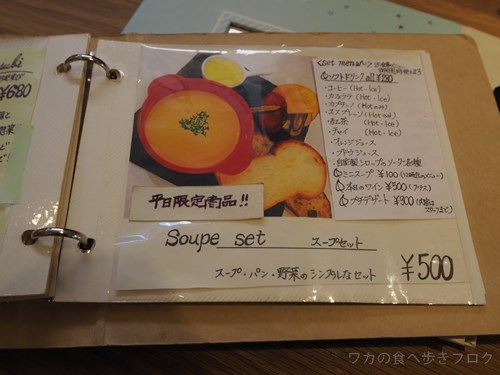 ¥680
<Set menu>
ソフトドリンク all ¥280
・コーヒー (Hot・Ice)
・カフェラテ (Hot・Ice)
・カプチーノ (Hot
・エスプレッソ (Hot
・紅茶 (Hot・Ice)
・チャイ (Hot・Ice)
・オレンジジュース
・ブドウジュース
・自家製シロップのソーダ各種
ミニスープ ¥100
本日のワイン ¥500 (グラス)
プチデザート ¥300
平日限定商品!!
Soupe set スープセット
スープ・パン・野菜のシンプルなセット
¥500
ワカの食べ歩きブログ